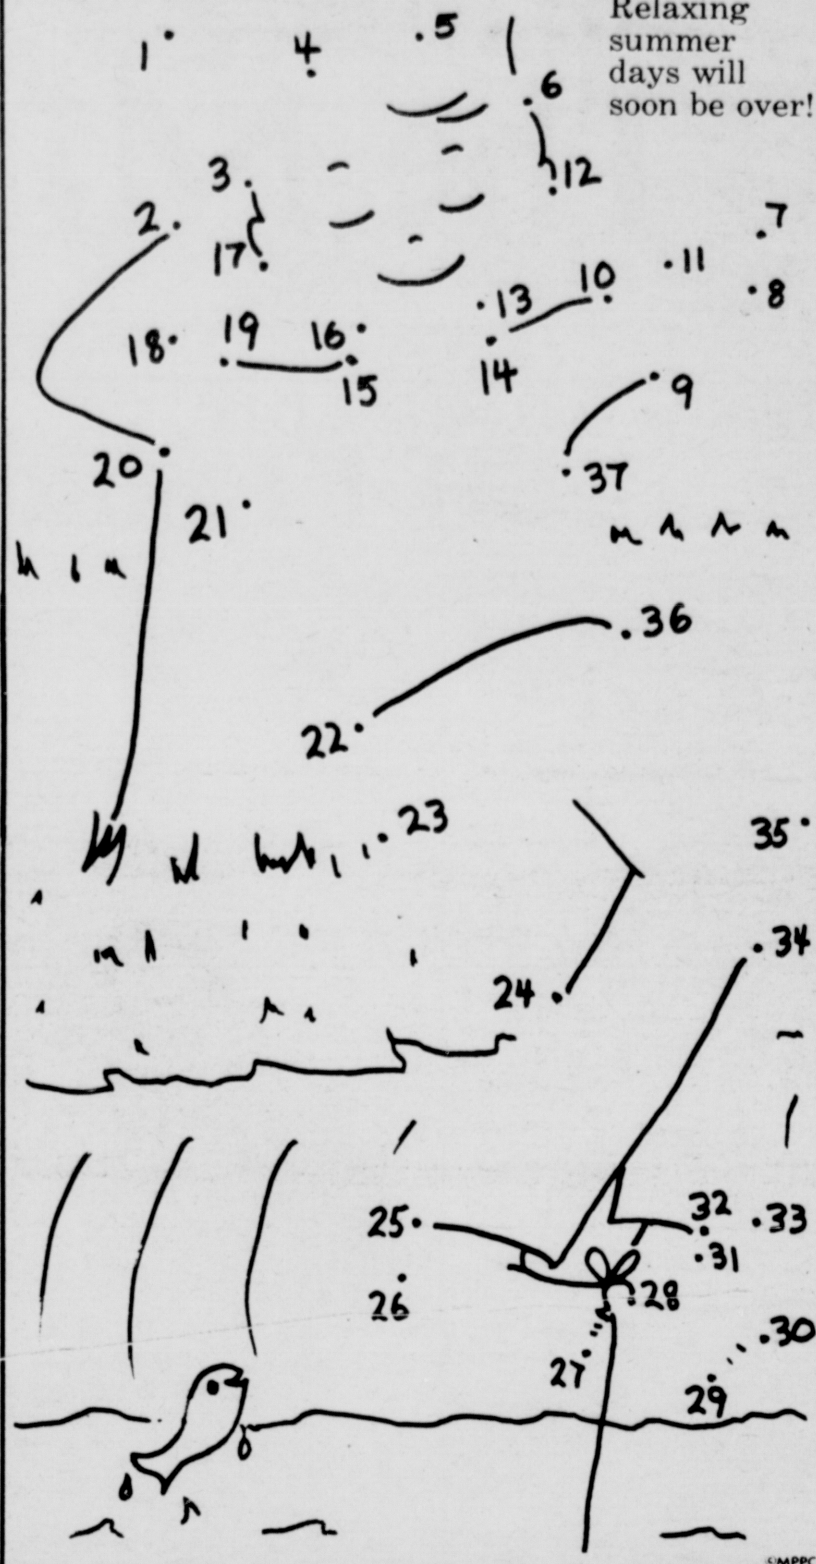 Relaxing
summer
days will
soon be over!
1 4 5
6
3 12
2 7
17 11
10 8
13
18 19 16
15 14 9
20 37
21
36
22
23 35
34
24
25 32 33
31
26 28
30
27 29
©MPPC